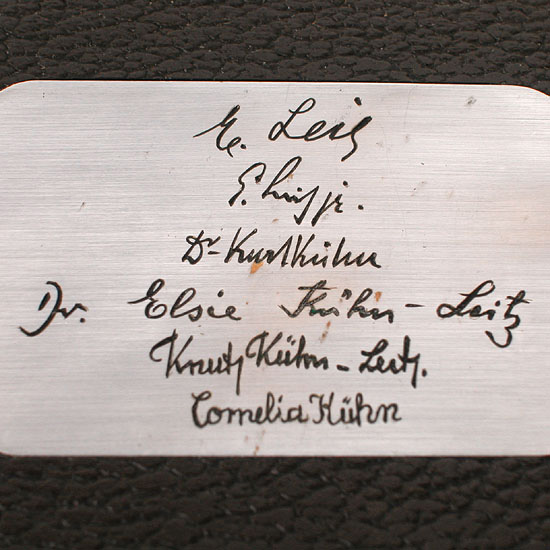 E. Leitz
E. Leitz jr.
Dr. Kurt Kühn
Dr. Elsie Kühn-Leitz
Knut Kühn-Leitz.
Cornelia Kühn